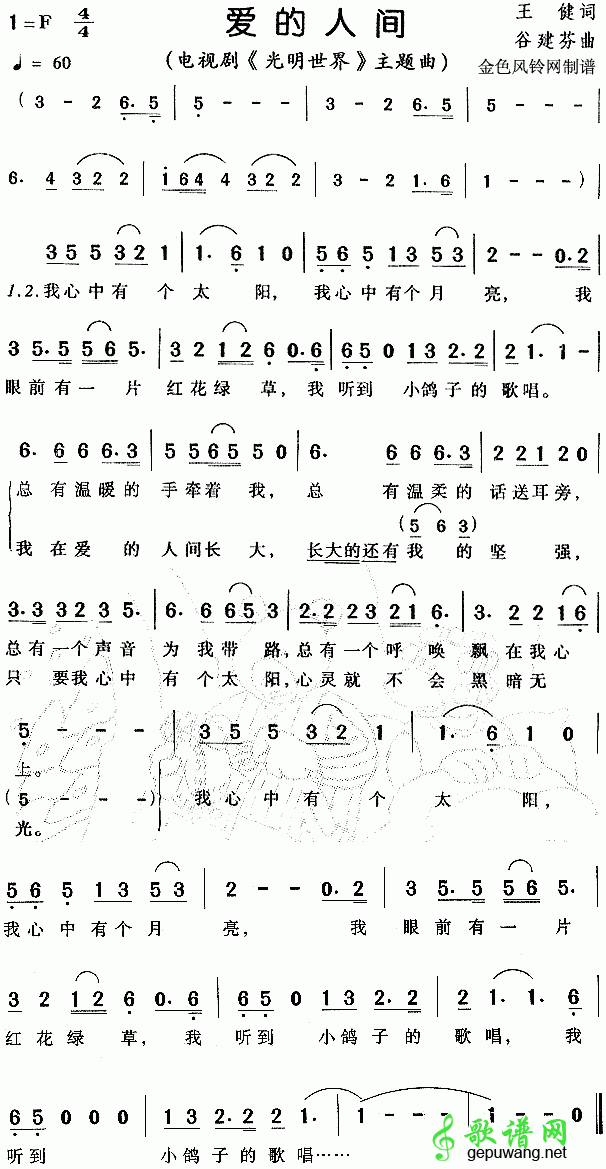 1=F 4/4 爱的人间 王 健词
♩= 60 (电视剧《光明世界》主题曲) 谷建芬曲
金色风铃网制谱
(3 - 2 6. 5 | 5 - - - | 3 - 2 6. 5 | 5 - - -
6. 4 3 2 2 | i 6 4 4 3 2 2 | 3 - 2 1. 6 | 1 - - -)|
3 5 5 3 2 1 | 1. 6 1 0 | 5 6 5 1 3 5 3 | 2 - - 0. 2 |
1.2.我心中有 个 太 阳, 我心中有个月 亮, 我
3 5. 5 5 6 5. | 3 2 1 2 6 0. 6 | 6 5 0 1 3 2. 2 | 2 1. 1 -
眼前有一 片 红花绿 草,我 听到 小鸽子的 歌唱。
6. 6 6 6 6. 3 | 5 5 6 5 5 0 | 6. 6 6 6. 3 | 2 2 1 2 0
总 有温暖的 手牵着 我, 总 有温柔的 话送耳旁,
(5 6 3)
我 在爱 的 人间长 大, 长大的还有我 的 坚 强,
3. 3 3 2 3 5. | 6. 6 6 5 3 | 2. 2 2 3 2 1 6. | 3. 2 2 1 6
总有一个声音 为 我带 路,总有一个呼 唤 飘 在我心
只 要我心中 有 个太 阳,心灵就 不 会 黑 暗无
5 - - - | 3 5 5 3 2 1 | 1. 6 1 0
上。
(5 - - -) 我心中有 个 太 阳,
光。
5 6 5 1 3 5 3 | 2 - - 0. 2 | 3 5. 5 5 6 5.
我心 中有个月 亮, 我 眼前有一 片
3 2 1 2 6 0. 6 | 6 5 0 1 3 2. 2 | 2 1. 1. 6
红花绿 草, 我 听到 小鸽子的 歌唱, 我
6 5 0 0 0 | 1 3 2. 2 2 1. | 1 - - - | 1 - - 0 ‖
听到 小鸽子的歌唱……
歌谱网
gepuwang.net